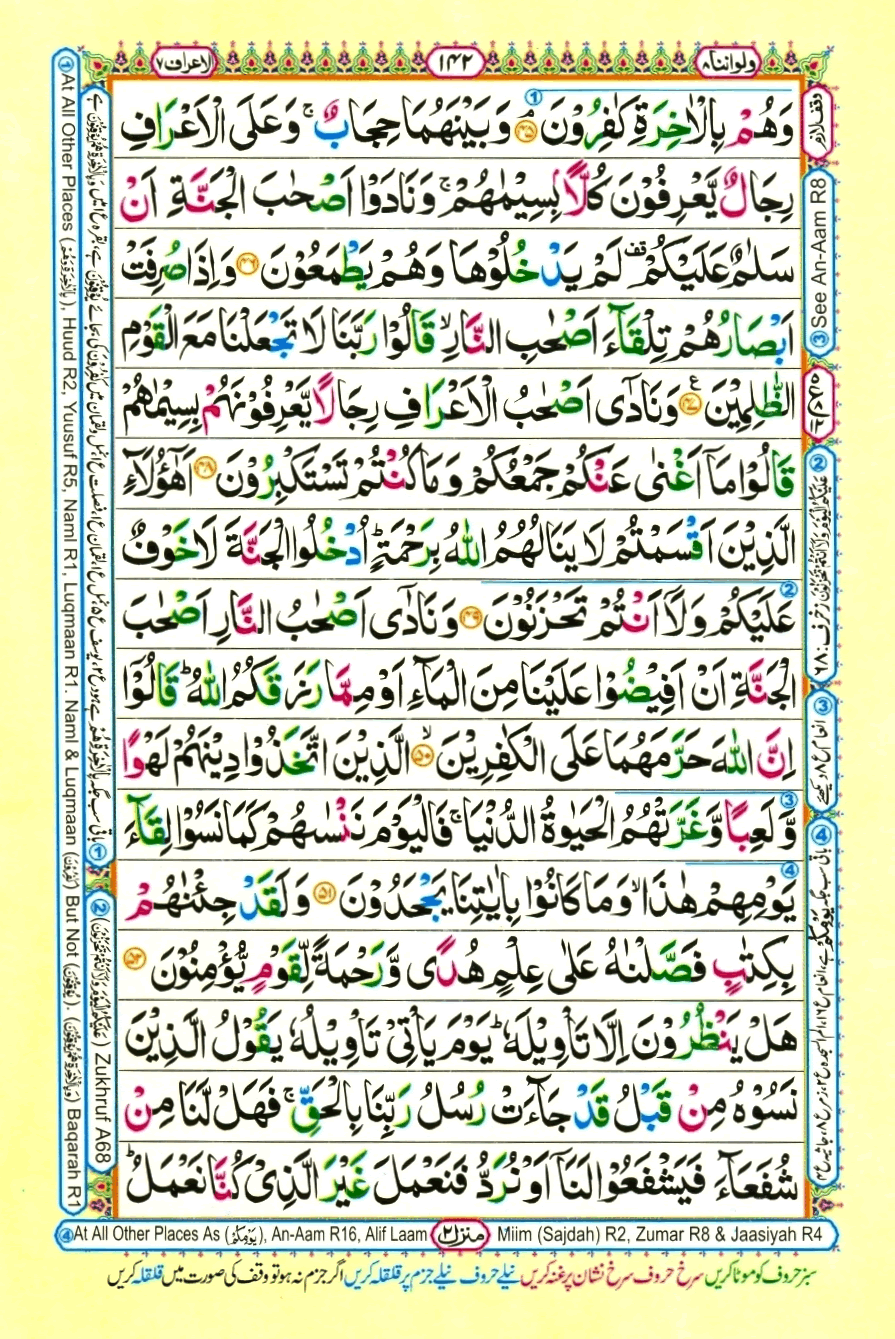 ولواننا ۸
۱۴۲
الاعراف ۷
وَهُمْ بِالْاٰخِرَةِ كٰفِرُوْنَ ۘ ﴿۴۵﴾ وَبَيْنَهُمَا حِجَابٌ ۚ وَعَلَى الْاَعْرَافِ
رِجَالٌ يَّعْرِفُوْنَ كُلًّاۢ بِسِيْمٰهُمْ ۚ وَنَادَوْا اَصْحٰبَ الْجَنَّةِ اَنْ
سَلٰمٌ عَلَيْكُمْ ۟ لَمْ يَدْخُلُوْهَا وَهُمْ يَطْمَعُوْنَ ﴿۴۶﴾ وَاِذَا صُرِفَتْ
اَبْصَارُهُمْ تِلْقَآءَ اَصْحٰبِ النَّارِ ۙ قَالُوْا رَبَّنَا لَا تَجْعَلْنَا مَعَ الْقَوْمِ
الظّٰلِمِيْنَ ﴿۴۷﴾ وَنَادٰٓى اَصْحٰبُ الْاَعْرَافِ رِجَالًا يَّعْرِفُوْنَهُمْ بِسِيْمٰهُمْ
قَالُوْا مَآ اَغْنٰى عَنْكُمْ جَمْعُكُمْ وَمَا كُنْتُمْ تَسْتَكْبِرُوْنَ ﴿۴۸﴾ اَهٰٓؤُلَآءِ
الَّذِيْنَ اَقْسَمْتُمْ لَا يَنَالُهُمُ اللّٰهُ بِرَحْمَةٍ ؕ اُدْخُلُوا الْجَنَّةَ لَا خَوْفٌ
عَلَيْكُمْ وَلَآ اَنْتُمْ تَحْزَنُوْنَ ﴿۴۹﴾ وَنَادٰٓى اَصْحٰبُ النَّارِ اَصْحٰبَ
الْجَنَّةِ اَنْ اَفِيْضُوْا عَلَيْنَا مِنَ الْمَآءِ اَوْ مِمَّا رَزَقَكُمُ اللّٰهُ ؕ قَالُوْٓا
اِنَّ اللّٰهَ حَرَّمَهُمَا عَلَى الْكٰفِرِيْنَ ۙ ﴿۵۰﴾ الَّذِيْنَ اتَّخَذُوْا دِيْنَهُمْ لَهْوًا
وَّلَعِبًا وَّغَرَّتْهُمُ الْحَيٰوةُ الدُّنْيَا ۚ فَالْيَوْمَ نَنْسٰىهُمْ كَمَا نَسُوْا لِقَآءَ
يَوْمِهِمْ هٰذَا ۙ وَمَا كَانُوْا بِاٰيٰتِنَا يَجْحَدُوْنَ ﴿۵۱﴾ وَلَقَدْ جِئْنٰهُمْ
بِكِتٰبٍ فَصَّلْنٰهُ عَلٰى عِلْمٍ هُدًى وَّرَحْمَةً لِّقَوْمٍ يُّؤْمِنُوْنَ ﴿۵۲﴾
هَلْ يَنْظُرُوْنَ اِلَّا تَاْوِيْلَهٗ ؕ يَوْمَ يَاْتِيْ تَاْوِيْلُهٗ يَقُوْلُ الَّذِيْنَ
نَسُوْهُ مِنْ قَبْلُ قَدْ جَآءَتْ رُسُلُ رَبِّنَا بِالْحَقِّ ۚ فَهَلْ لَّنَا مِنْ
شُفَعَآءَ فَيَشْفَعُوْا لَنَآ اَوْ نُرَدُّ فَنَعْمَلَ غَيْرَ الَّذِيْ كُنَّا نَعْمَلُ ؕ
وقف لازم
③ See An-Aam R8
② عَلَيْكُمُ الْيَوْمَ وَلَآ اَنْتُمْ تَحْزَنُوْنَ زخرف: ۶۸
① At All Other Places (بِالْاٰخِرَةِ هُمْ), Huud R2, Yuusuf R5, Naml R1, Luqmaan R1. Naml & Luqmaan (كٰفِرُوْنَ) But Not (يُوْقِنُوْنَ). (وَبِالْاٰخِرَةِ هُمْ يُوْقِنُوْنَ) Baqarah R1
② (عَلَيْكُمُ الْيَوْمَ وَلَآ اَنْتُمْ تَحْزَنُوْنَ) Zukhruf A68
④ At All Other Places As (يَوْمِكُمْ), An-Aam R16, Alif Laam
منزل ۲
Miim (Sajdah) R2, Zumar R8 & Jaasiyah R4
سبز حروف کو موٹا کریں سرخ حروف سرخ نشان پر غنہ کریں نیلے حروف نیلے جزم پر قلقلہ کریں اگر جزم نہ ہو تو وقف کی صورت میں قلقلہ کریں